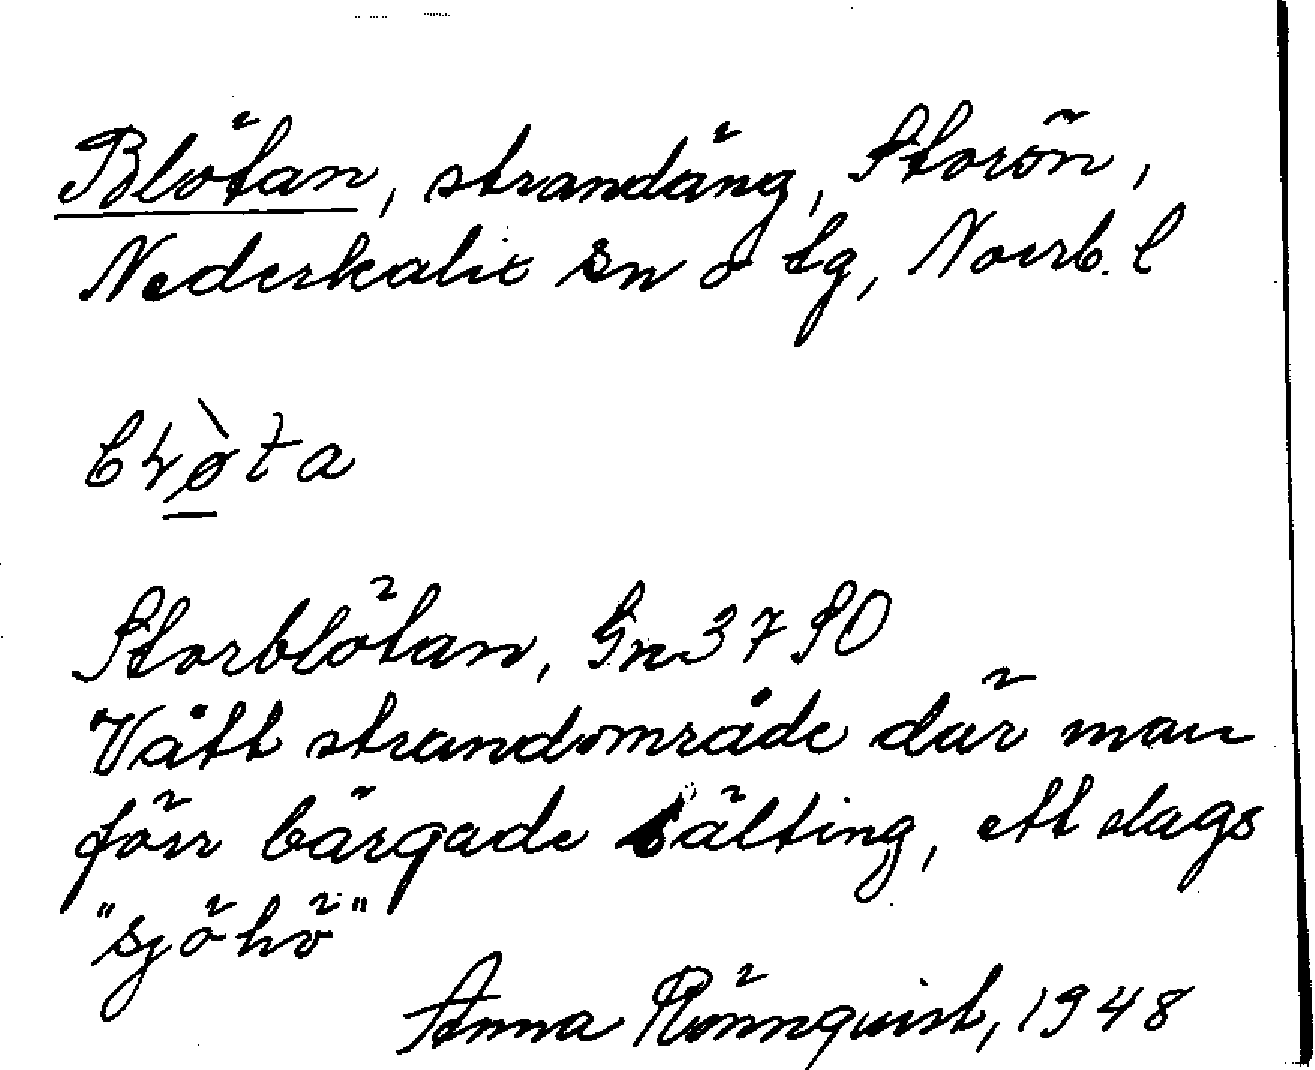 Blötan, strandäng, Storön,
Nederkalix sn o tg, Norrb. l
Storblötan, Gn 37 SO
Vått strandområde där man
förr bärgade sälting, ett slags
"sjöhö"
Anna Rönnquist, 1948